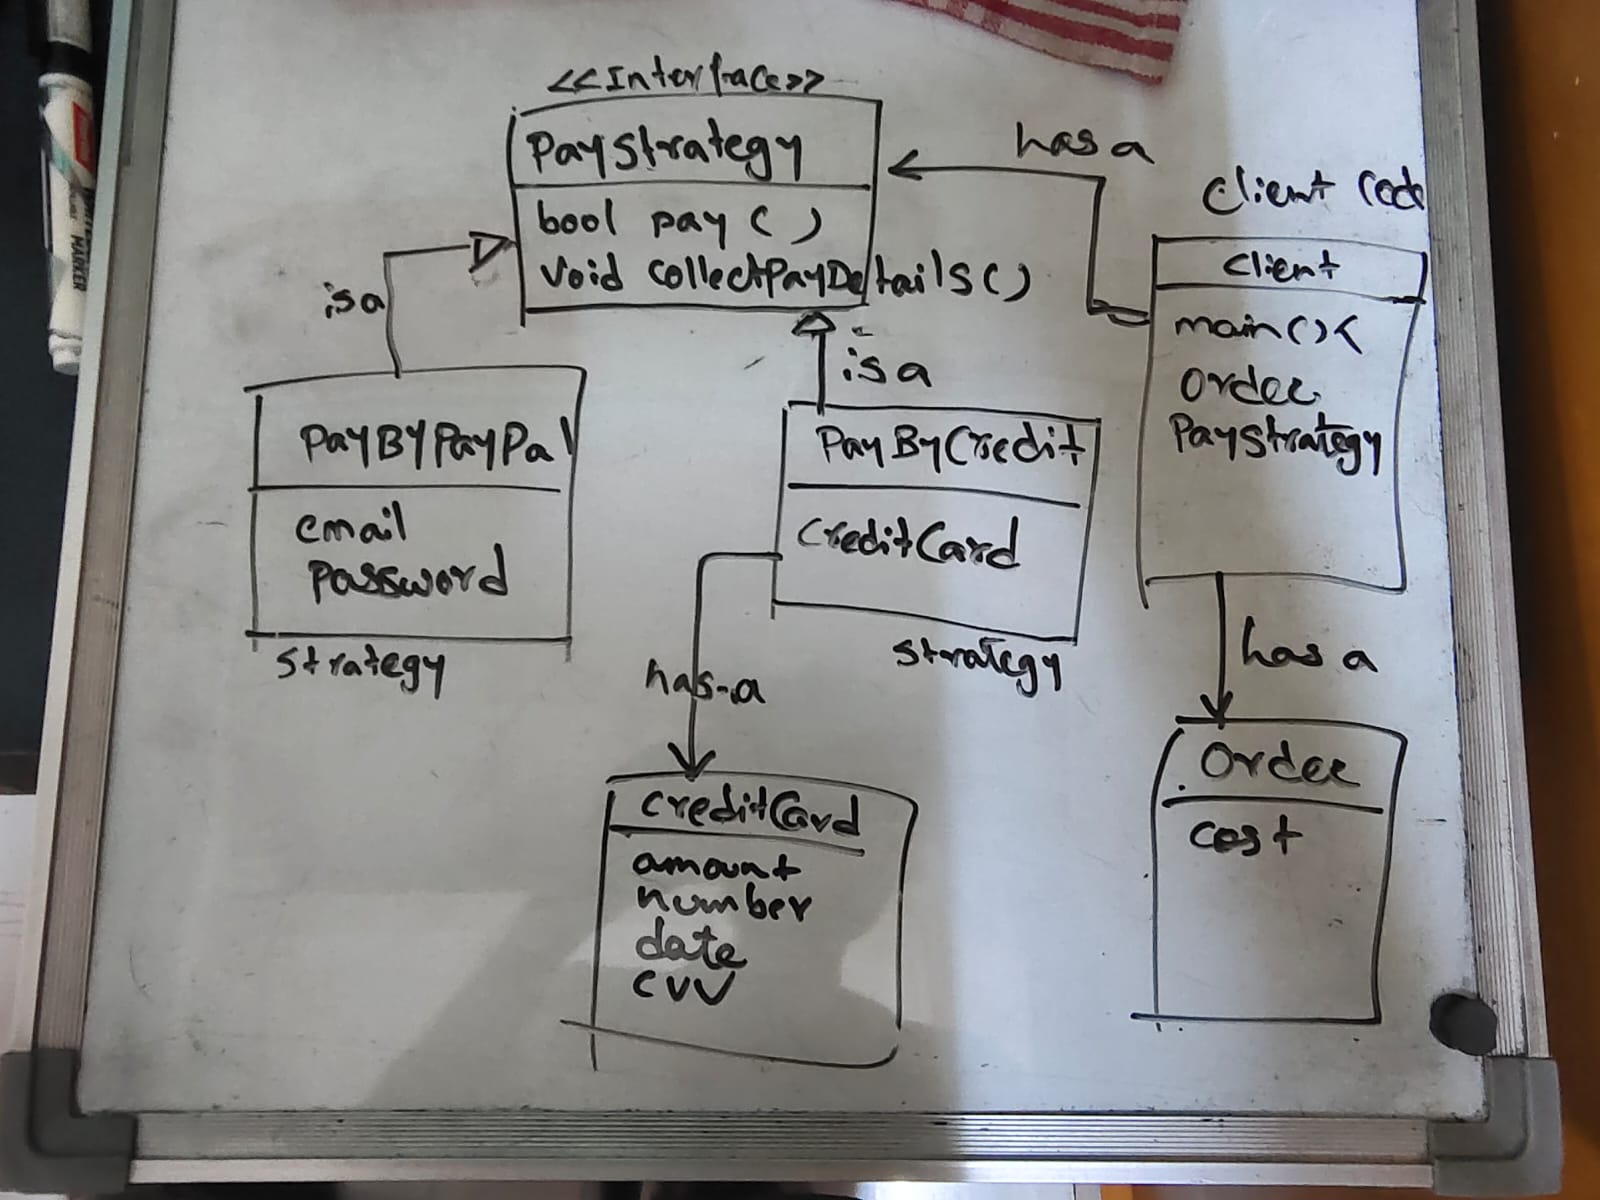 <<Interface>>
PayStrategy
bool pay ( )
void collectPayDetails ( )
has a
Client Cod
Client
main ( ) {
Order
PayStrategy
is a
is a
PayBYPayPal
email
password
Strategy
PayByCredit
CreditCard
Strategy
has-a
has a
CreditCard
amount
number
date
cvv
Order
cost
MARKER